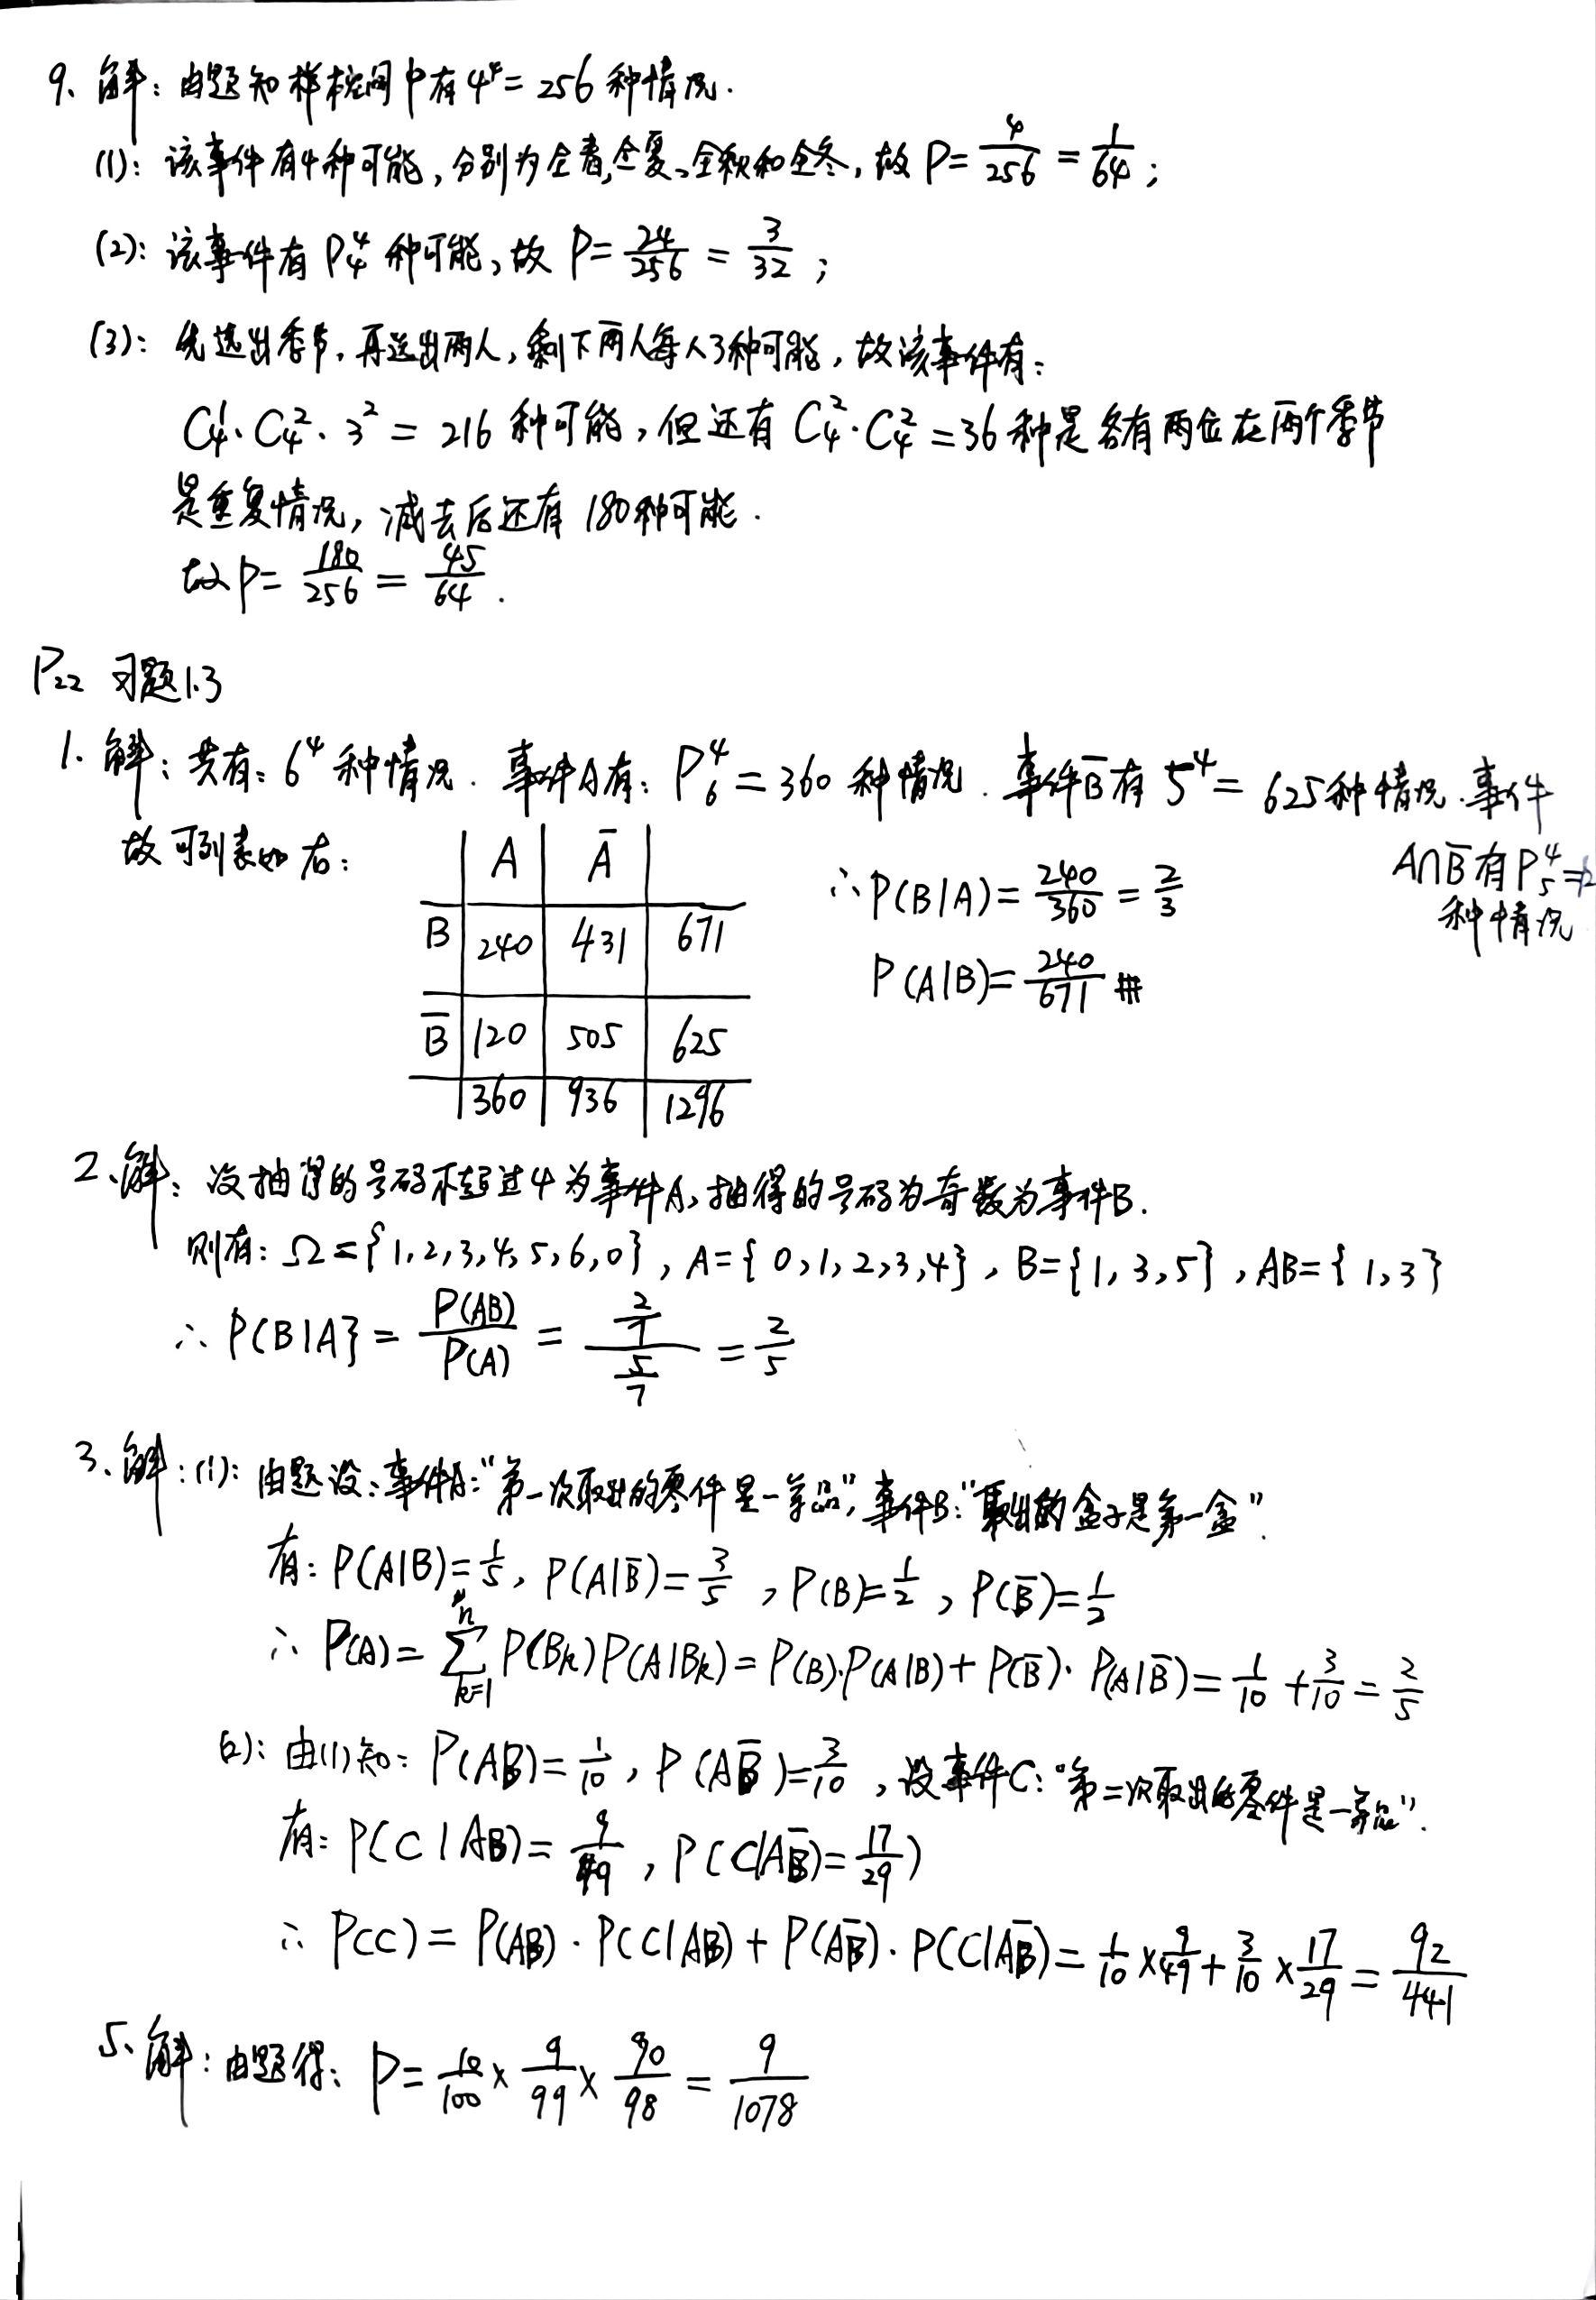 9、解：由题知样本空间中有4⁴=256种情况.
(1)：该事件有4种可能，分别为全春、全夏、全秋和全冬，故P=4/256=1/64；
(2)：该事件有P₄⁴种可能，故P=24/256=3/32；
(3)：先选出季节，再选出两人，剩下两人每人3种可能，故该事件有：
C₄¹·C₄²·3²=216种可能，但还有C₄²·C₄²=36种是各有两位在两个季节
是重复情况，减去后还有180种可能.
故P=180/256=45/64.
P₂₂ 习题1.3
1.解：共有：6⁴种情况.事件A有：P₆⁴=360种情况.事件B̄有5⁴=625种情况.事件
A∩B̄有P₅⁴=12
种情况
故可列表如右：
A Ā
B 240 431 671
B̄ 120 505 625
360 936 1296
∴P(B|A)=240/360=2/3
P(A|B)=240/671 #
2、解：设抽得的号码不超过4为事件A，抽得的号码为奇数为事件B.
则有：Ω={1,2,3,4,5,6,0}，A={0,1,2,3,4}，B={1,3,5}，AB={1,3}
∴P(B|A}=P(AB)/P(A)=(2/7)/(5/7)=2/5
3、解：(1)：由题设：事件A:“第一次取出的零件是一等品”，事件B:“取出的盒子是第一盒”.
有：P(A|B)=1/5，P(A|B̄)=3/5，P(B)=1/2，P(B̄)=1/2
∴P(A)=∑ₖ₌₁ⁿP(Bₖ)P(A|Bₖ)=P(B)·P(A|B)+P(B̄)·P(A|B̄)=1/10+3/10=2/5
(2)：由(1)知：P(AB)=1/10，P(AB̄)=3/10，设事件C：“第二次取出的零件是一等品”.
有：P(C|AB)=9/49，P(C|AB̄)=17/29)
∴P(C)=P(AB)·P(C|AB)+P(AB̄)·P(C|AB̄)=1/10×9/49+3/10×17/29=92/441
5、解：由题得：P=10/100×9/99×90/98=9/1078